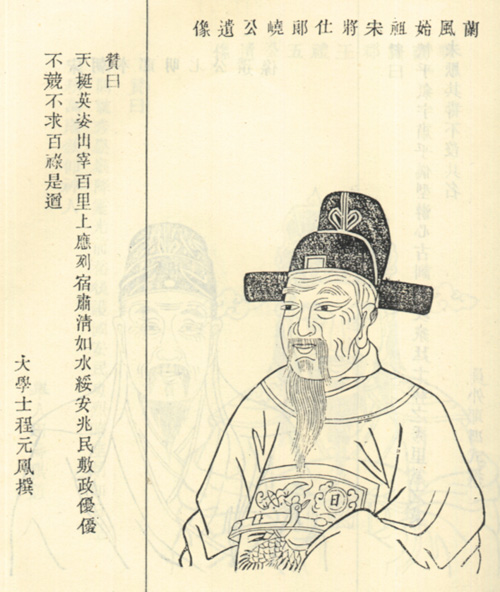 蘭風始祖宋將仕郎嶢公遺像
日
贊曰
天挺英姿出宰百里上應列宿肅清如水綏安兆民敷政優優
不競不求百祿是遒
大學士程元鳳撰